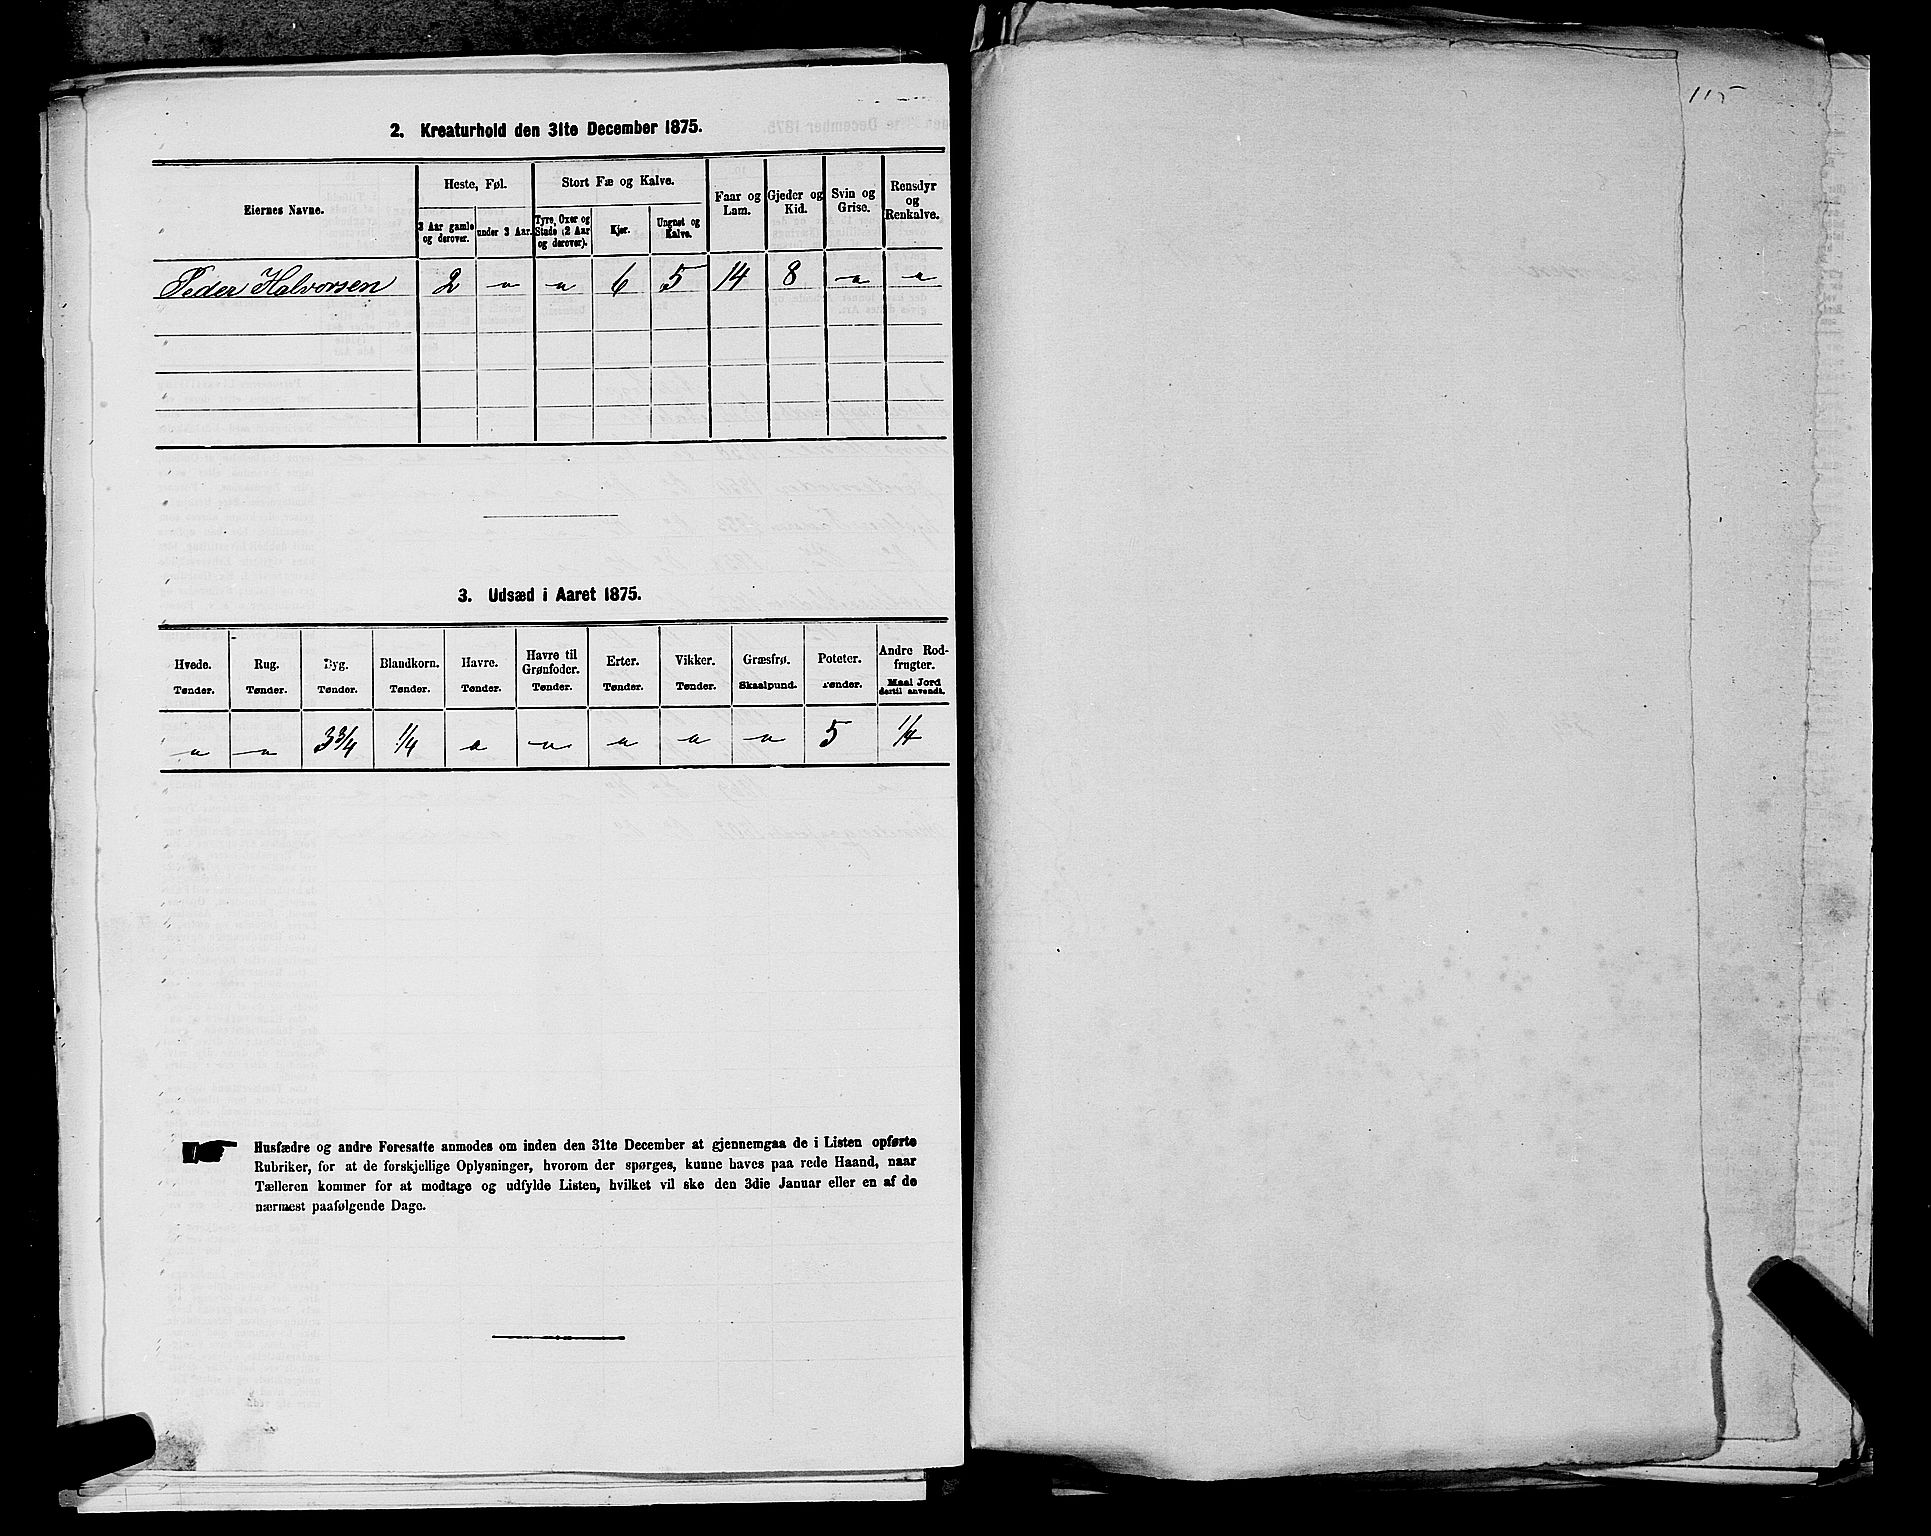 2. Kreaturhold den 31te December 1875.
Eiernes Navne. | Heste, Føl. | Stort Fæ og Kalve. | Faar og Lam. | Gjeder og Kid. | Svin og Grise. | Rensdyr og Renkalve.
3 Aar gamle og derover. | under 3 Aar. | Tyre, Oxer og Stude (2 Aar og derover). | Kjør. | Ungnøt og Kalve.
Peder Halvorsen | 2 | " | " | 6 | 5 | 14 | 8 | " | "
3. Udsæd i Aaret 1875.
Hvede. | Rug. | Byg. | Blandkorn. | Havre. | Havre til Grønfoder. | Erter. | Vikker. | Græsfrø. | Poteter. | Andre Rodfrugter.
Tønder. | Tønder. | Tønder. | Tønder. | Tønder. | Tønder. | Tønder. | Tønder. | Skaalpund. | Tønder. | Maal Jord dertil anvendt.
" | " | 3 3/4 | 1/4 | " | " | " | " | " | 5 | 1/4
Husfædre og andre Foresatte anmodes om inden den 31te December at gjennemgaa de i Listen opførte
Rubriker, for at de forskjellige Oplysninger, hvorom der spørges, kunne haves paa rede Haand, naar
Tælleren kommer for at modtage og udfylde Listen, hvilket vil ske den 3die Januar eller en af de
nærmest paafølgende Dage.
115